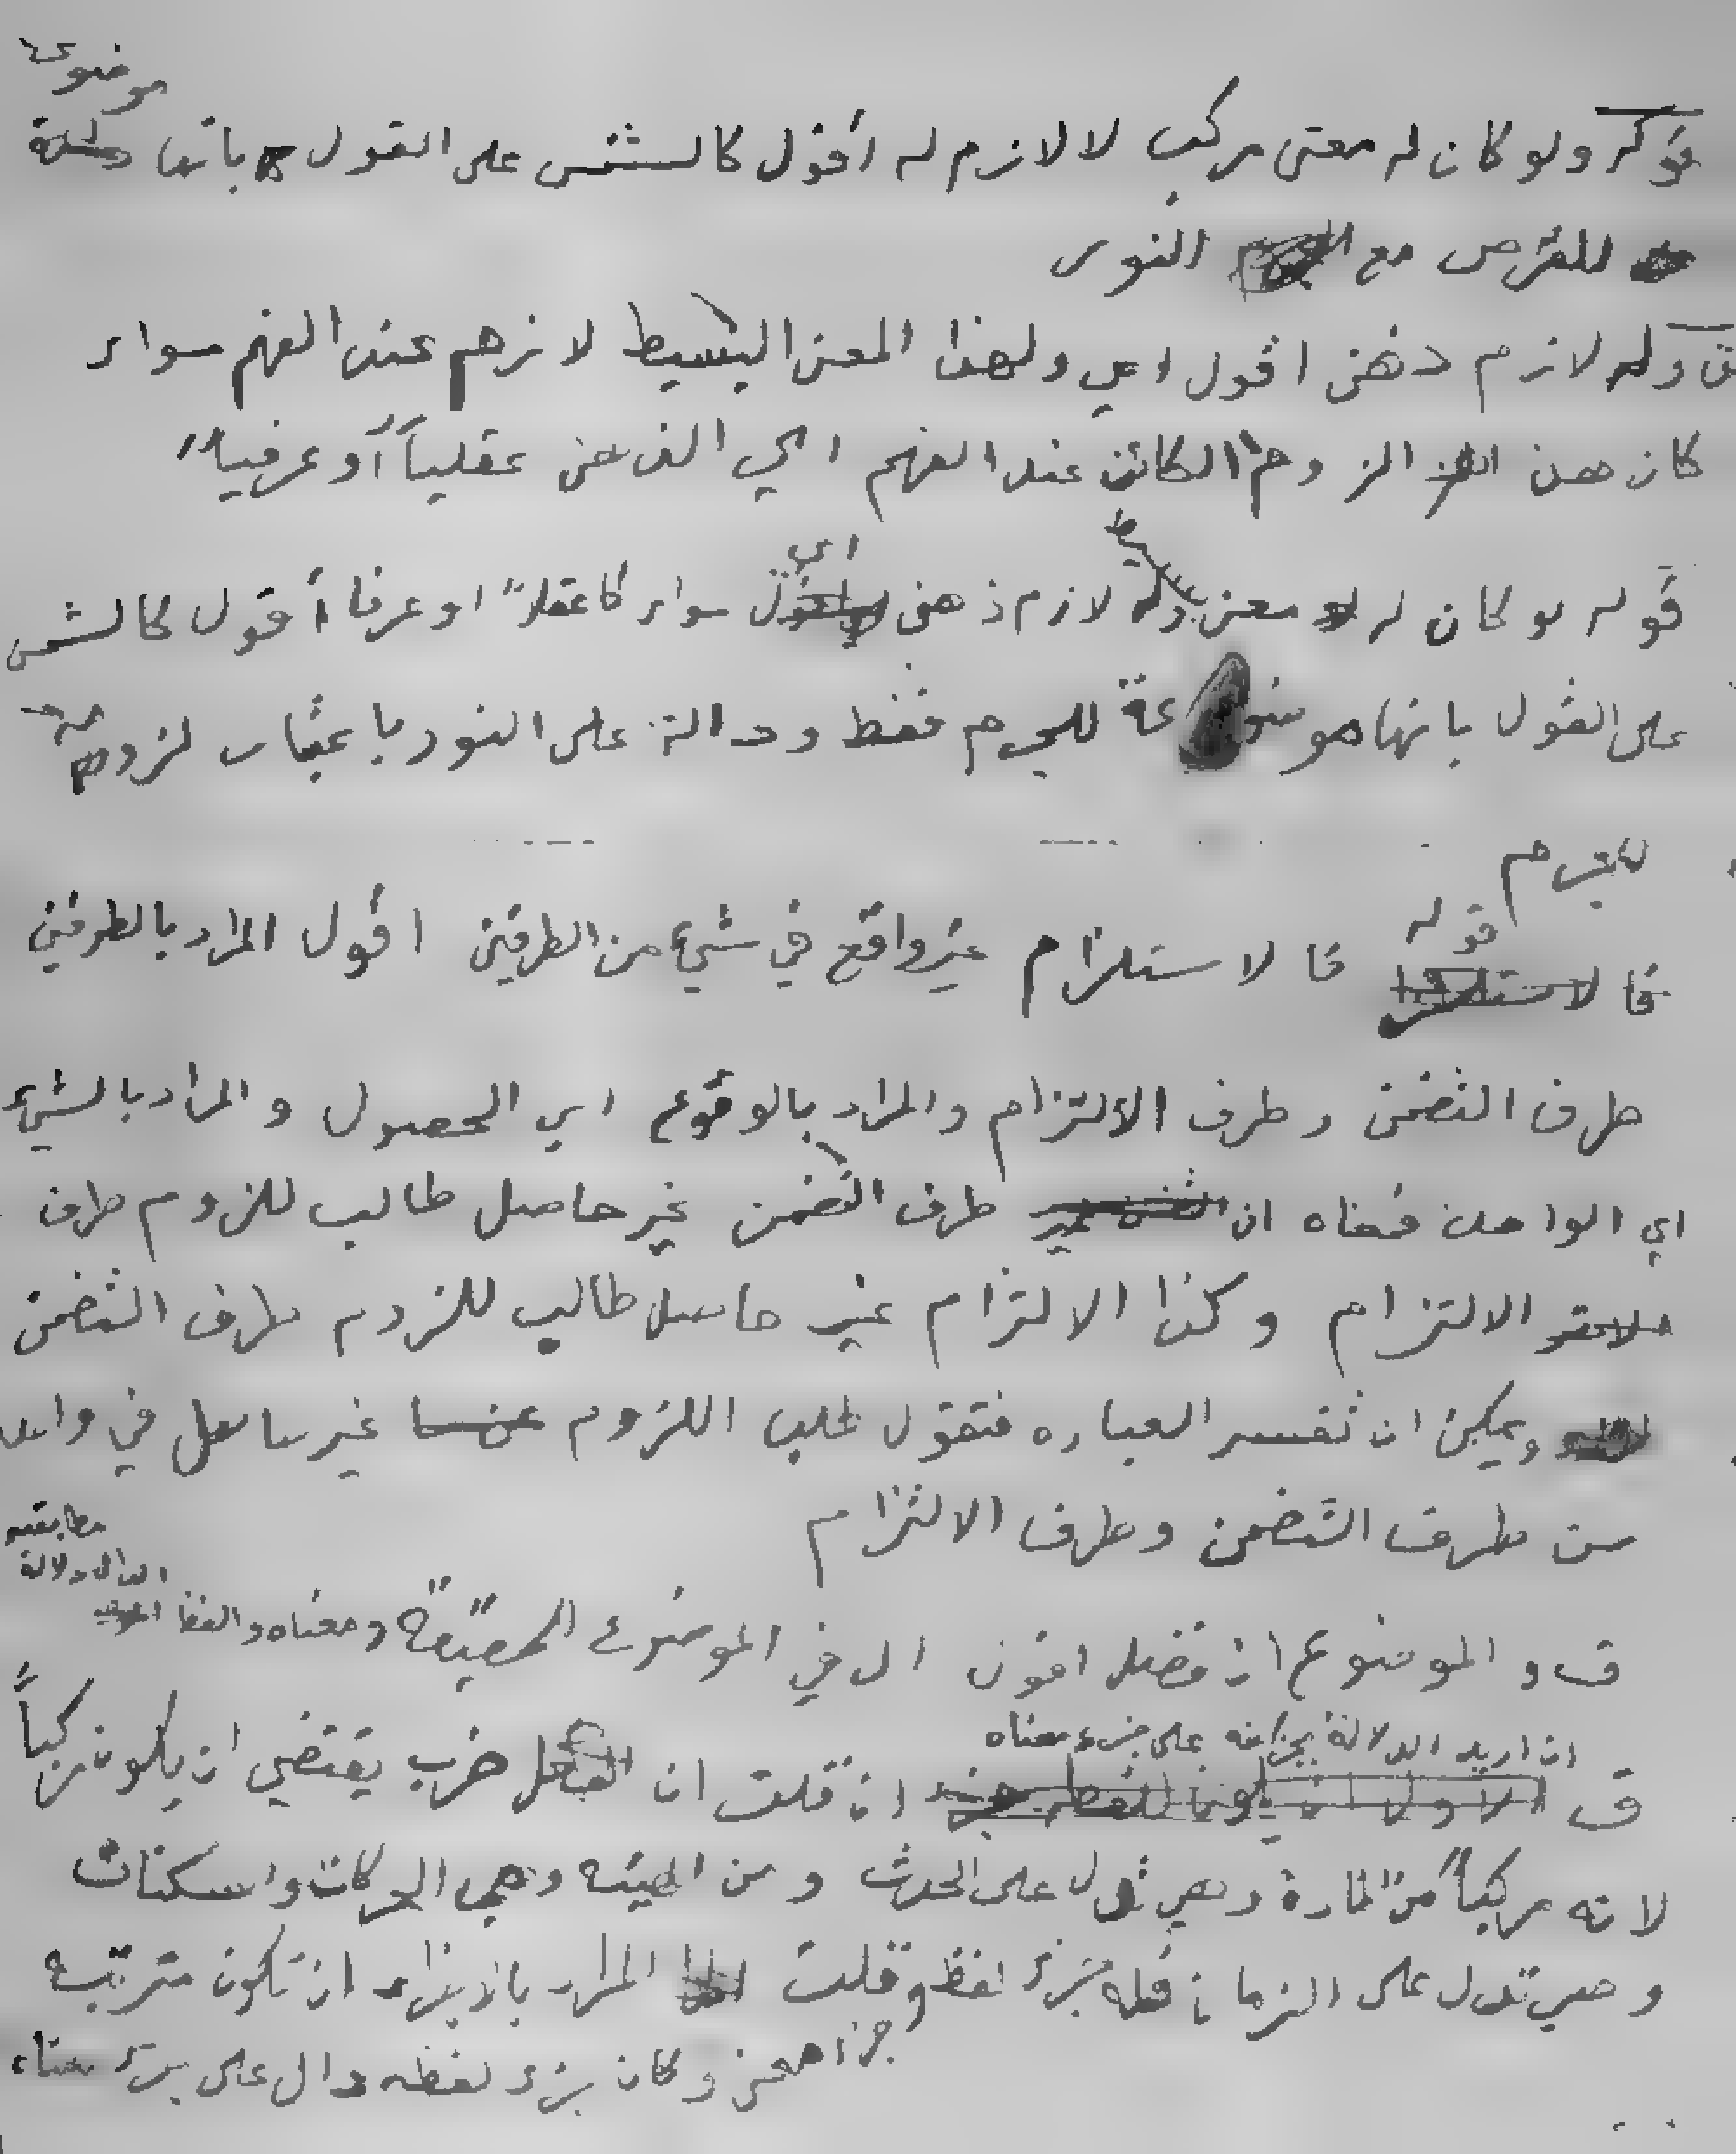 موضوعة
قوله ولو كان له معنى مركب لا لازم له أقول كالشمس على القول بأنها
للقرص مع النور
ق وله لازم ذهني اقول اي ولهذا المعنى البسيط لازم عند الفهم سواء
كان هذا اللزوم الكائن عند الفهم اي الذهني عقلياً أو عرفياً
قوله لو كان له معنى بسيط وله لازم ذهني اي سواء كا عقلاً او عرفا أقول كالشمس
على القول بانها موضوعة للجرم فقط ودالة على النور باعتبار لزومه
للجرم
قوله فالاستلزام غير واقع في شيء من الطرفين اقول المراد بالطرفين
طرف التضمن وطرف الالتزام والمراد بالوقوع اي الحصول والمراد بالشيء
اي الواحد فمعناه ان طرف التضمن غير حاصل طالب للزوم طرف
الالتزام وكذا الالتزام غير حاصل طالب للزوم طرف التضمن
ويمكن ان تفسر العباره فتقول طلب اللزوم غير حاصل في واحد
من طرف التضمن وطرف الالتزام
ق و الموضوع ان قصد اقول ال في الموضوع ومعناه واللفظ الدال دلالة مطابقيه
ق ان اريد الدلالة بجزئه على جزء معناه ان قلت ان الفعل ضرب يقتضي ان يكون مركباً
لانه مركباً من المادة وهي تدل على الحدث ومن الهيئه وهي الحركات واسكنات
وهي تدل على الزمان فله جزء لفظ وجزا معنى قلت المراد بالاجزاء ان تكون مترتبه
وكان جزء لفظه دال على جزء معناه